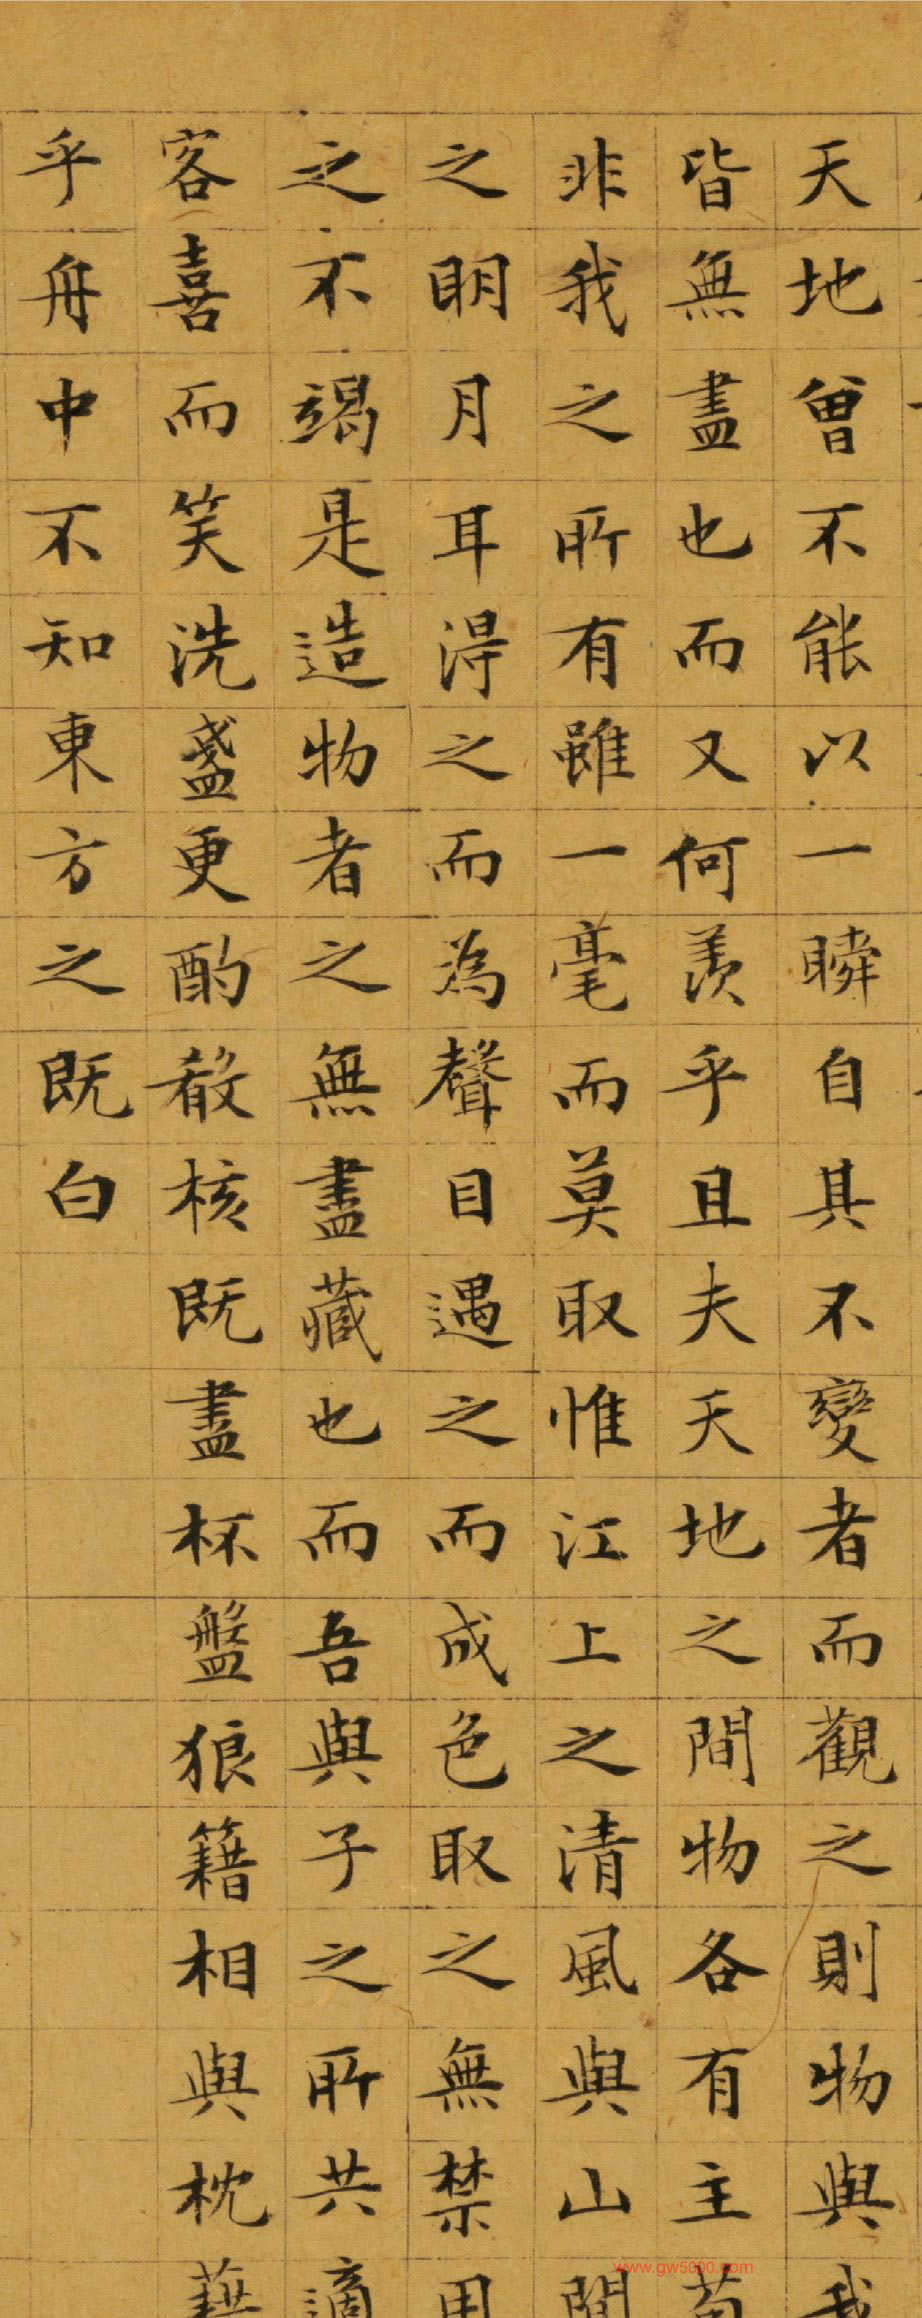 天地曾不能以一瞬自其不變者而觀之則物與我
皆無盡也而又何羨乎且夫天地之間物各有主苟
非我之所有雖一毫而莫取惟江上之清風與山間
之明月耳得之而為聲目遇之而成色取之無禁用
之不竭是造物者之無盡藏也而吾與子之所共適
客喜而笑洗盞更酌殽核既盡杯盤狼籍相與枕藉
乎舟中不知東方之既白
www.gw5000.com